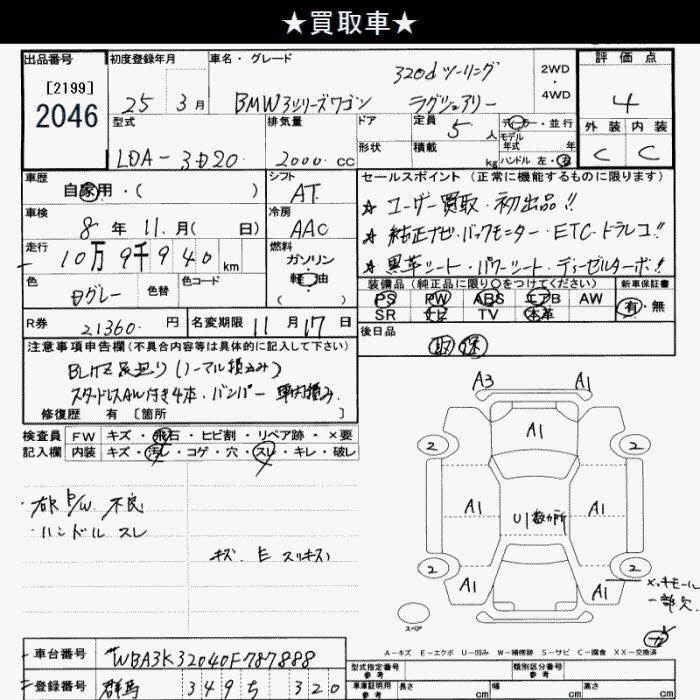 ★買取車★
出品番号 初度登録年月 車名・グレード 評価点
[2199] 320d ツーリング 2WD
2046 25 3月 BMW3シリーズワゴン ラグジュアリー ・4WD 4
型式 排気量 ドア 定員 5 人 ディーラー・並行 外装 内装
モデル年式 年
LDA-3D20 2000 cc 形状 積載 kg ハンドル 左・右 C C
車歴 シフト セールスポイント (正常に機能するものに限ります)
自家用・( ) AT ★ユーザー買取・初出品!!
車検 冷房 ★純正ナビ・バックモニター・ETC・ドラレコ!!
8年 11月( 日) AAC
走行 燃料 ★黒革シート・パワーシート・ディーゼルターボ!!
10万9千940km ガソリン
色 色替 色コード 軽油 装備品(純正品に限り○をつけてください) 新車保証書
グレー PS PW ABS エアB AW 有・無
SR ナビ TV 本革
R券 21360 円 名変期限 11月17日 後日品
取 保
注意事項申告欄(不具合内容等は具体的に記入して下さい)
スタッドレスAW付き4本・バンパー 車内積み
修復歴 有 [箇所 ]
検査員 FW キズ・飛石・ヒビ割・リペア跡・×要
記入欄 内装 キズ・汚し・コゲ・穴・スレ・キレ・破し
A3 A1
A1
2 2
・右R P/W 不良
A1 U1数カ所 A1
・ハンドル スレ
キズ、E スリキズ
2 2
A1 A1 メッキモール
一部欠
スペア
A-キズ E-エクボ U-凹み W-補修跡 S-サビ C-腐食 XX-交換済
車台番号 WBA3K32040F787888 型式指定番号 参考 類別区分番号 参考
登録番号 群馬 349 ち 320 車庫証明用 参考 長さ cm 幅 cm 高さ cm